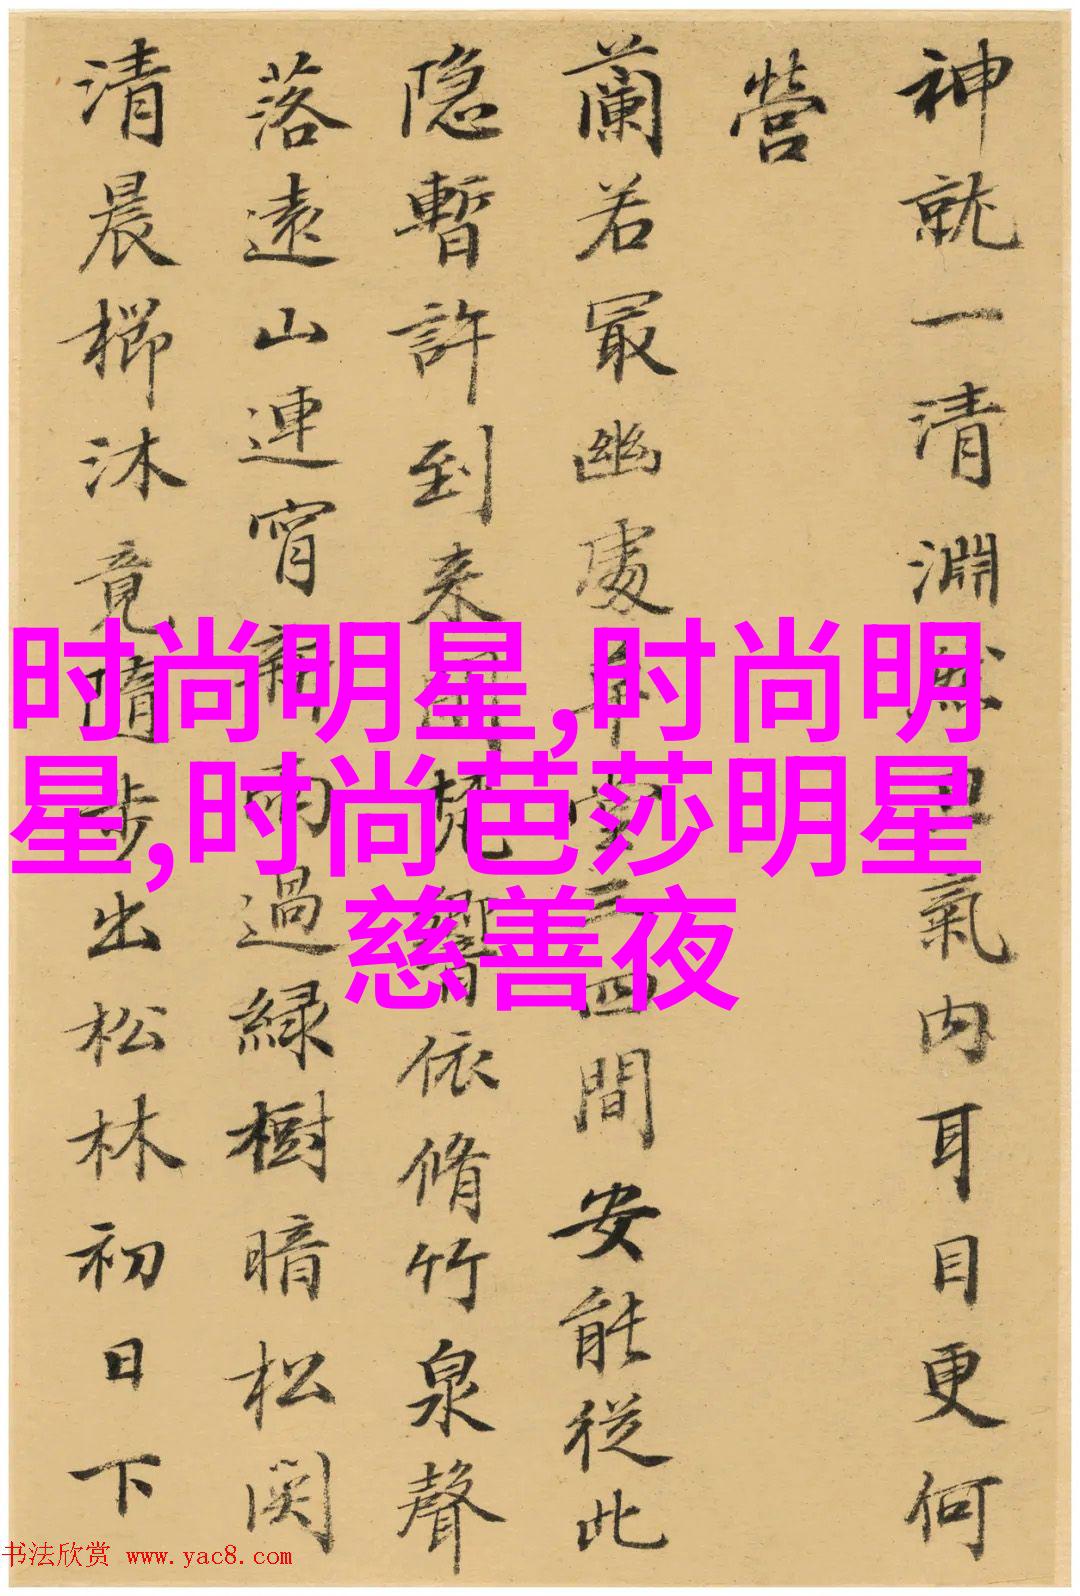 神就一清淵然氣内耳目更何
營
蘭若冣幽處草堂三四間安能従此
隐暫許到来梵響依脩竹泉聲
落遠山連宵新雨過緑樹暗松関
清晨櫛沐竟隨步出松林初日下
时尚明星,时尚明
星,时尚芭莎明星
慈善夜
书法欣赏 www.yac8.com